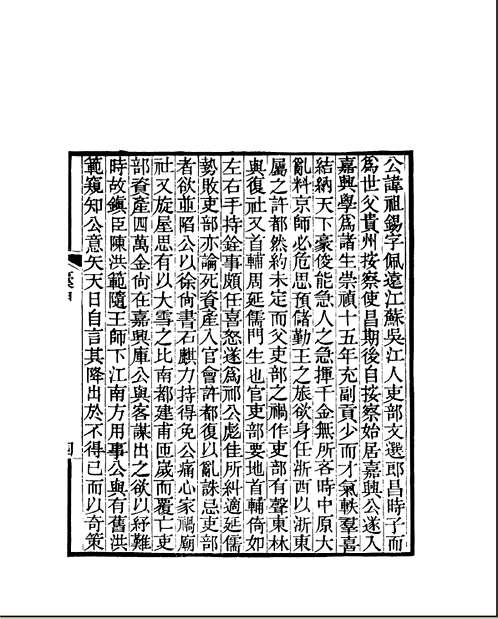 公諱祖錫字佩遠江蘇吳江人吏部文選郎昌時子而
爲世父貴州按察使昌期後自按察始居嘉興公遂入
嘉興學爲諸生崇禎十五年充副貢少而才氣軼羣喜
結納天下豪俊能急人之急揮千金無所吝時中原大
亂料京師必危思預儲勤王之旅欲身任浙西以浙東
屬之許都然約未定而父吏部之禍作吏部有聲東林
與復社又首輔周延儒門生也官吏部要地首輔倚如
左右手持銓事頗任喜怒遂爲祁公彪佳所糾適延儒
勢敗吏部亦論死資產入官會許都復以亂誅忌吏部
者欲並陷公以徐尚書石麒力持得免公痛心家禍廟
社又旋屋思有以大雪之比南都建甫匝歲而覆亡吏
部資產四萬金尙在嘉興庫公與客謀出之欲以紓難
時故鎭臣陳洪範隨王師下江南方用事公與有舊洪
範窺知公意矢天日自言其降出於不得已而以奇策
四